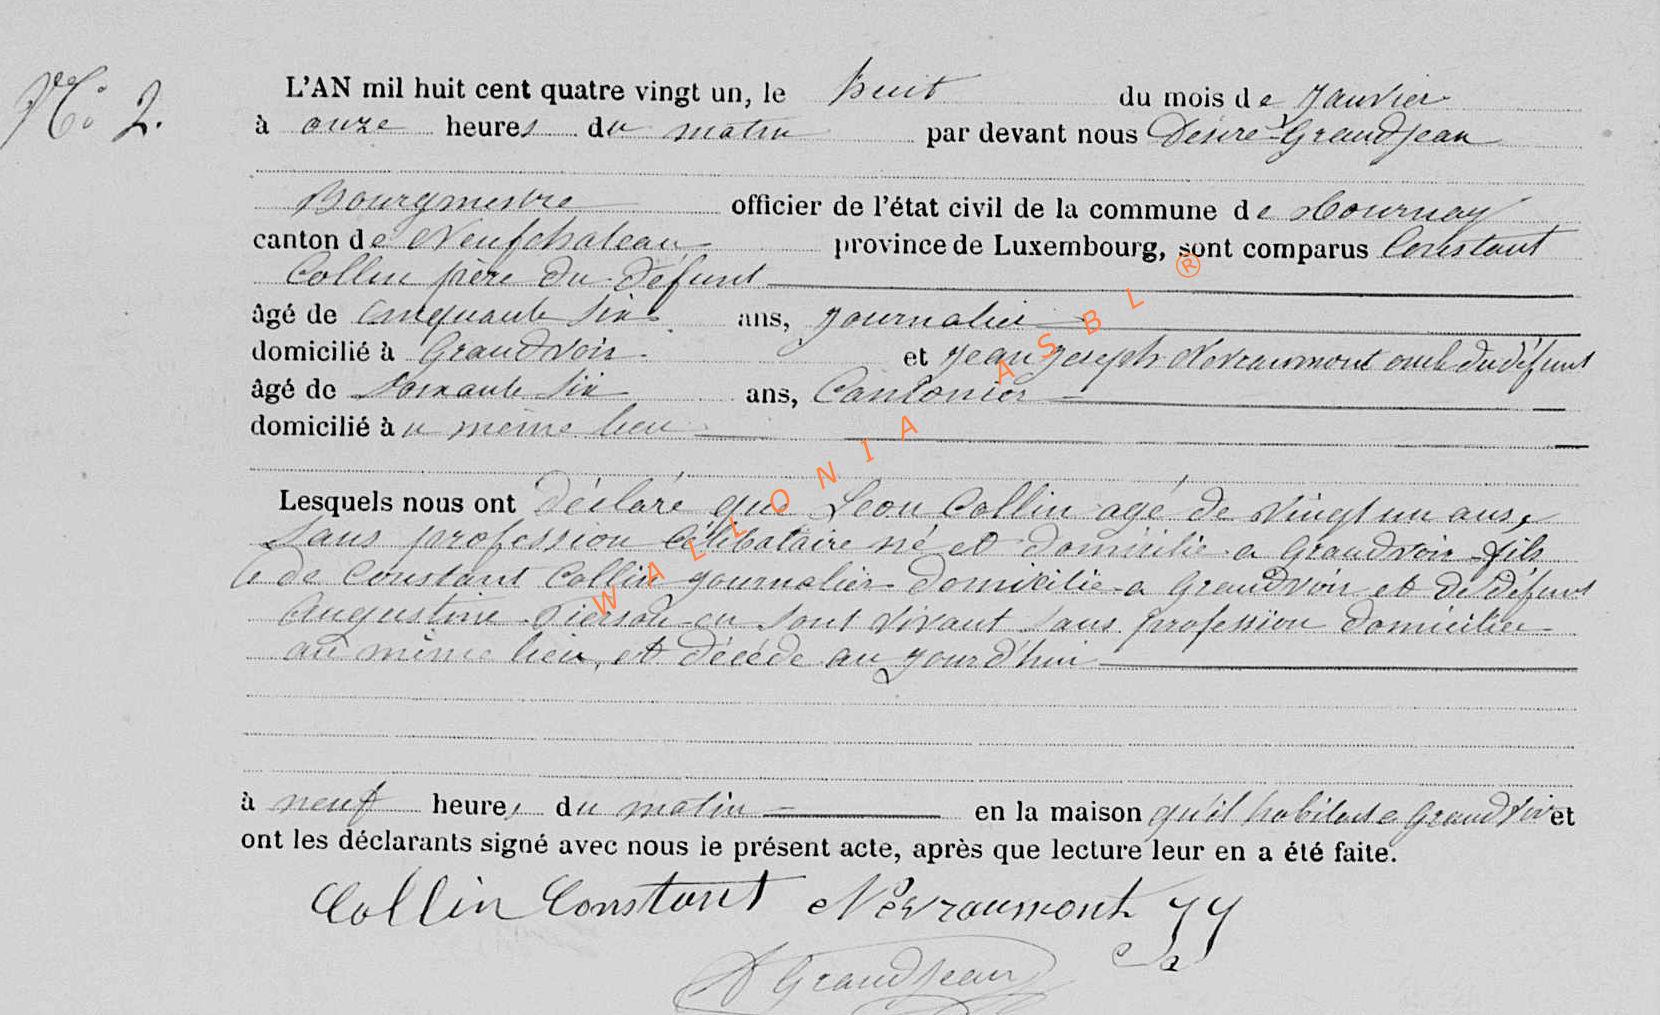 No 2.
L'AN mil huit cent quatre vingt un, le huit du mois de Janvier
à onze heures du matin par devant nous Désiré Grandjean
Bourgmestre officier de l'état civil de la commune de Tournay
canton de Neufchateau province de Luxembourg, sont comparus Constant
Collin père du défunt
âgé de cinquante six ans, journalier
domicilié à Grandvoir et Jean Joseph Nevraumont oncle du défunt
âgé de soixante six ans, Cantonier
domicilié au même lieu
Lesquels nous ont déclaré que Leon Collin agé de vingt un ans,
sans profession Célibataire né et domicilié a Grandvoir fils
de Constant Collin journalier domicilié a Grandvoir et de défunt
Augustine Pierson en sont vivant sans profession domicilier
au même lieu, et décédé au jourd'hui
à neuf heures du matin en la maison qu'il habitait a Grandvoir et
ont les déclarants signé avec nous le présent acte, après que lecture leur en a été faite.
Collin Constant Névraumont JJ
D Grandjean
WALLONIA ASBL ®